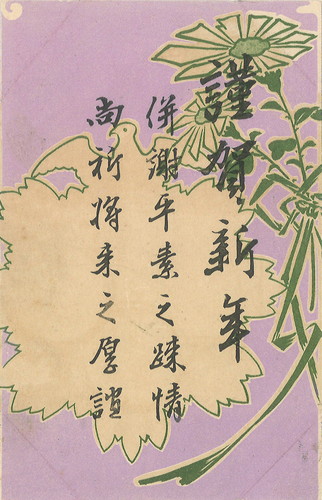 謹賀新年
併謝平素之疎情
尚祈将来之厚誼